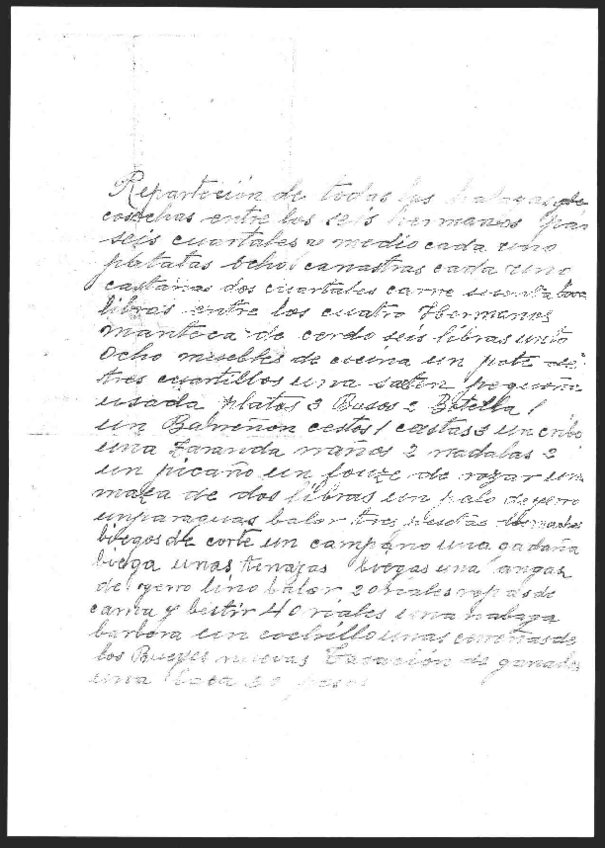 Repartoción de todas las
cosechas entre los seis hermanos pan
seis cuartales y medio cada uno
platatas ocho canastras cada uno
castañas dos cuartales carne
libras entre los cuatro Hermanos
manteca de cerdo seis libras unto
ocho muebles de cocina un pote de
tres cuartillos una saten pequeña
usada platos 3 Basos 2 Botella 1
un Balreñon cestos 1 castas 3 un cribo
una Zaranda naños 2 madalas 2
un picaño un fouze de rozar una
maza de dos libras un palo de yerro
unparaguas balor tres pesetas
biegos de corte un campano una gadaña
biega unas tinazas biegas una angas
de yerro lino balor 20 riales ropas de
cama y bestir 40 riales una nabaga
barbera un cochillo unas cornetras de
los Bueyes nuevas Tasación de ganados
una Baca 30 pesos